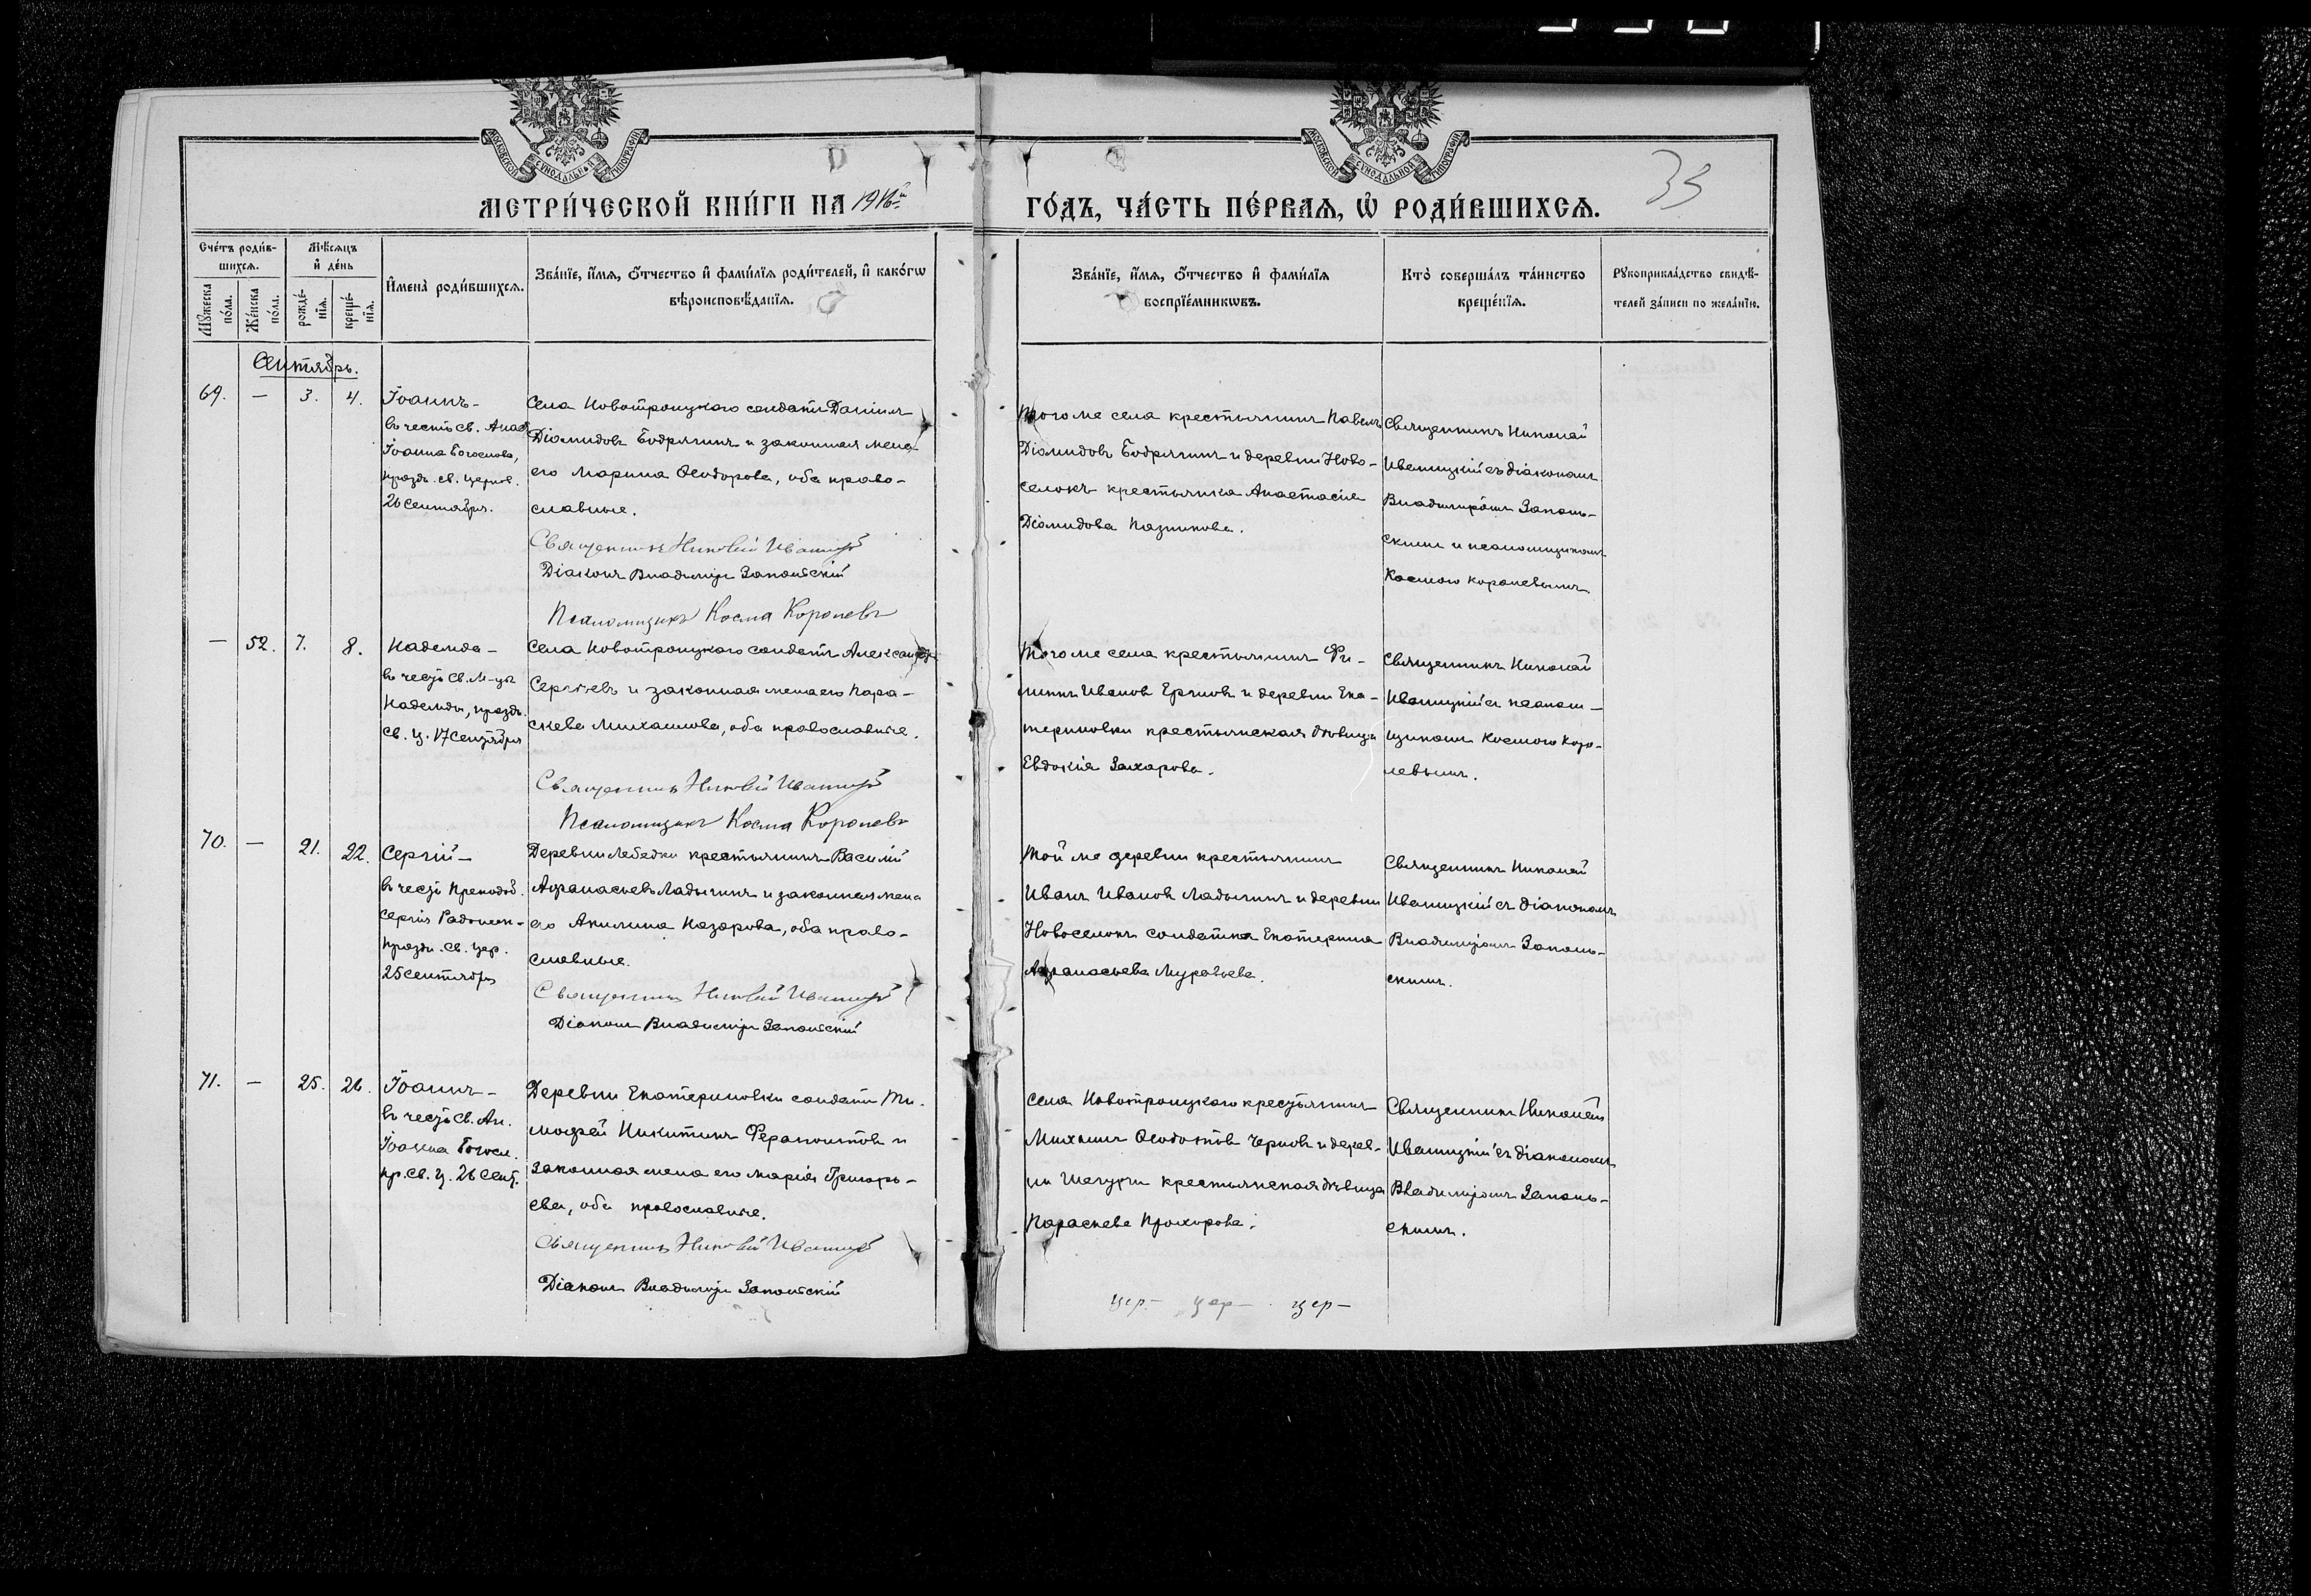 МОСКОВСКОЙ СУНОДАЛЬНОЙ ТИПОГРАФІИ
МОСКОВСКОЙ СУНОДАЛЬНОЙ ТИПОГРАФІИ
МЕТРИ́ЧЕСКОЙ КНИ́ГИ НА 1916й
ГО́ДЪ, ЧА́СТЬ ПЕ́РВАЯ, Ѡ҆ РОДИ́ВШИХСЯ.
35
Сче́тъ роди́в-
шихся.
Мѣ́сяцъ
и҆ де́нь
Мꙋ́жеска по́ла.
Же́нска по́ла.
рожде́-
нїя.
креще́-
нїя.
И҆мена̀ роди́вшихся.
Зва́нїе, и҆́мя, ѻ҆́тчество и҆ фами́лїя роди́телей, и҆ како́гѡ
вѣроисповѣ́данїя.
Зва́нїе, и҆́мя, ѻ҆́тчество и҆ фами́лїя
воспрїе́мникѡвъ.
Кто̀ соверша́лъ та́инство
креще́нїя.
Рꙋкоприкла́дство свидѣ́-
телей за́писи по жела́нїю.
Сентябрь.
69. — 3. 4.
Іоаннъ-
въ честь св. Апос
Іоанна Богослова,
празд. св. церков.
26 Сентября.
Села Новотроицкаго солдатъ Даніилъ
Діомидовъ Бодрягинъ и законная жена
его Марина Ѳеодорова, оба право-
славные.
Священникъ Николай Иваницкій
Діаконъ Владиміръ Запольскій
Псаломщикъ Косма Королевъ
Того же села крестьянинъ Павелъ
Діомидовъ Бодрягинъ и деревни Ново-
селокъ крестьянка Анастасія
Діомидова Казникова.
Священникъ Николай
Иваницкій съ діакономъ
Владиміромъ Заполь-
скимъ и псаломщикомъ
Космою Королевымъ
— 52. 7. 8.
Надежда-
въ честь Св. М-цы
Надежды, празд.
св. ц. 17 Сентября
Села Новотроицкаго солдатъ Александръ
Сергѣевъ и законная жена его Пара-
скева Михаилова, оба православные.
Священникъ Николай Иваницкій
Псаломщикъ Косма Королевъ
Того же села крестьянинъ Фи-
липпъ Ивановъ Ершовъ и деревни Ека-
териновки крестьянская дѣвица
Евдокія Захарова.
Священникъ Николай
Иваницкій съ псалом-
щикомъ Космою Коро-
левымъ.
70. — 21. 22.
Сергій-
въ честь Преподоб.
Сергія Радонеж-
празд. св. цер.
25 сентября
Деревни Лебедки крестьянинъ Василій
Аѳанасьевъ Ладыгинъ и законная жена
его Акилина Назарова, оба право-
славные.
Священникъ Николай Иваницкій
Діаконъ Владиміръ Запольскій
Той же деревни крестьянинъ
Иванъ Ивановъ Ладыгинъ и деревни
Новоселокъ солдатка Екатерина
Афанасьева Муравьева.
Священникъ Николай
Иваницкій съ діакономъ
Владиміромъ Заполь-
скимъ.
71. — 25. 26.
Іоаннъ-
въ честь Св. Ап.
Іоанна Богосл.
пр. св. ц. 26 Сент.
Деревни Екатериновки солдатъ Ти-
моѳей Никитинъ Ферапонтовъ и
законная жена его Марія Григорь-
ева, оба православные.
Священникъ Николай Иваницкій
Діаконъ Владиміръ Запольскій
Села Новотроицкаго крестьянинъ
Михаилъ Ѳеодотовъ Черновъ и дерев-
ни крестьянская дѣвица
Параскева Прохорова.
Священникъ Николай
Иваницкій съ діакономъ
Владиміромъ Заполь-
скимъ.
цер- цер- цер-